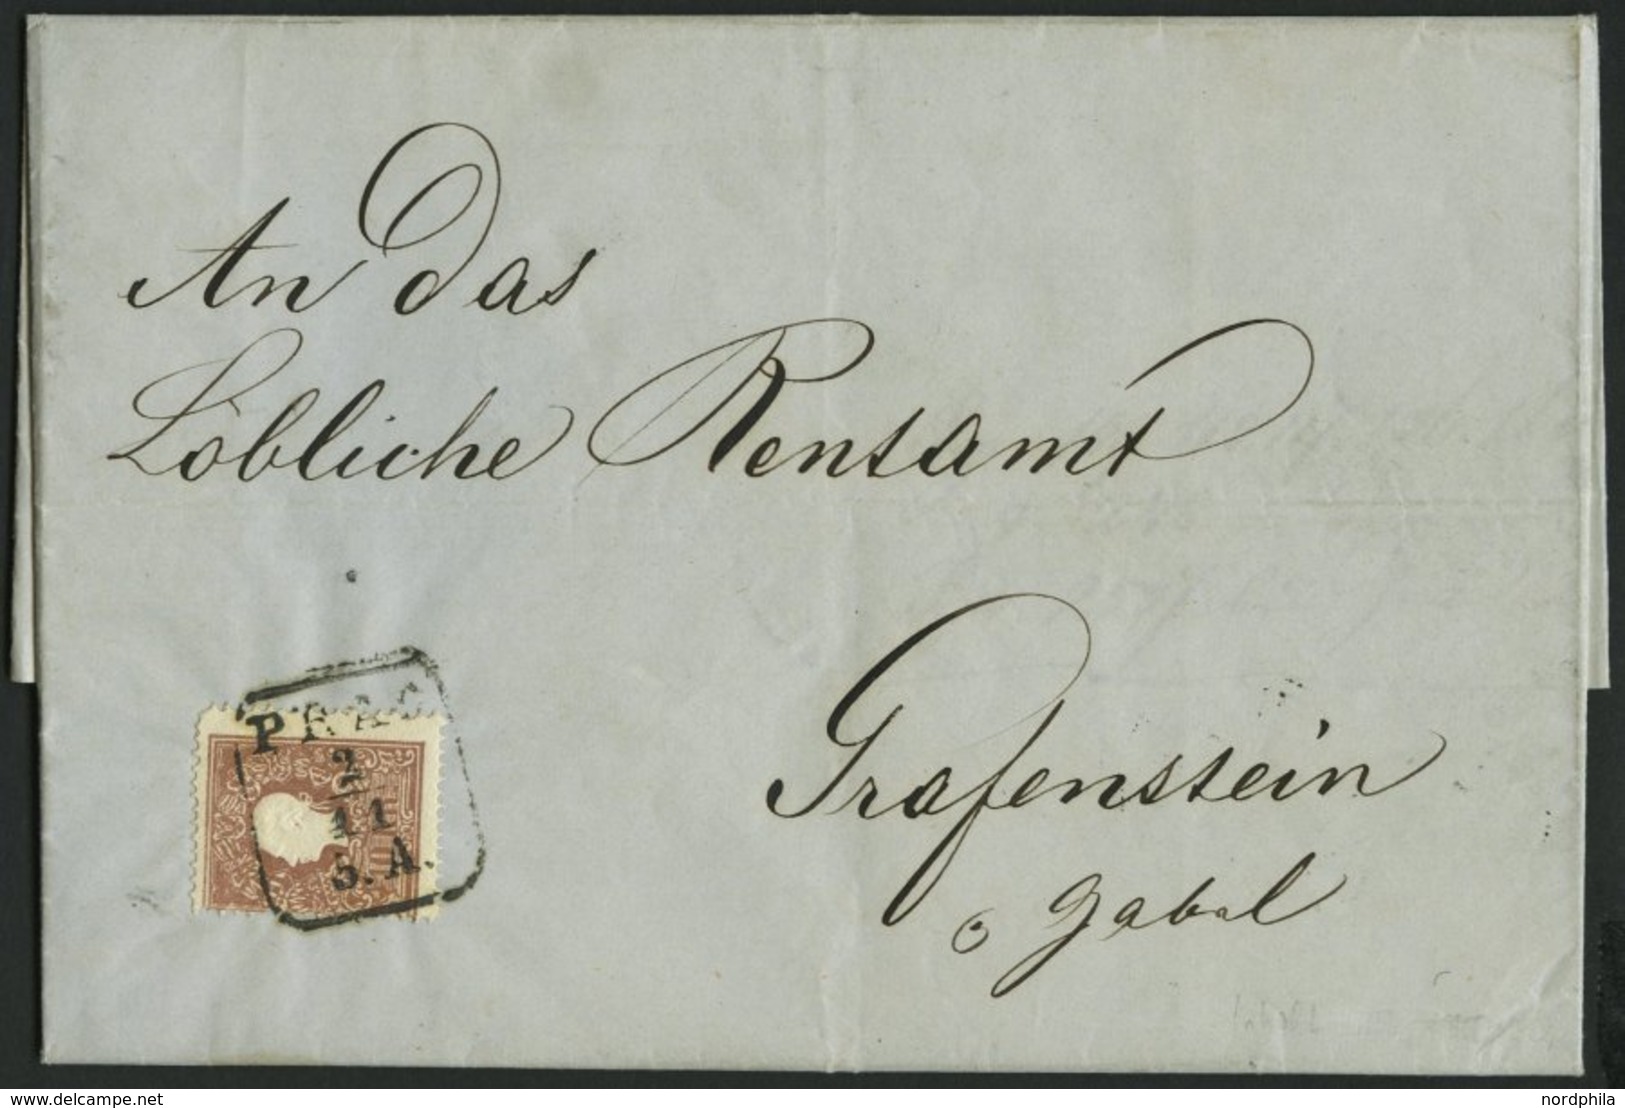 An das
Löbliche Rentamt
PRAG
2
11
5. A.
Grafenstein
Gabel
delcampe.net
nordphila